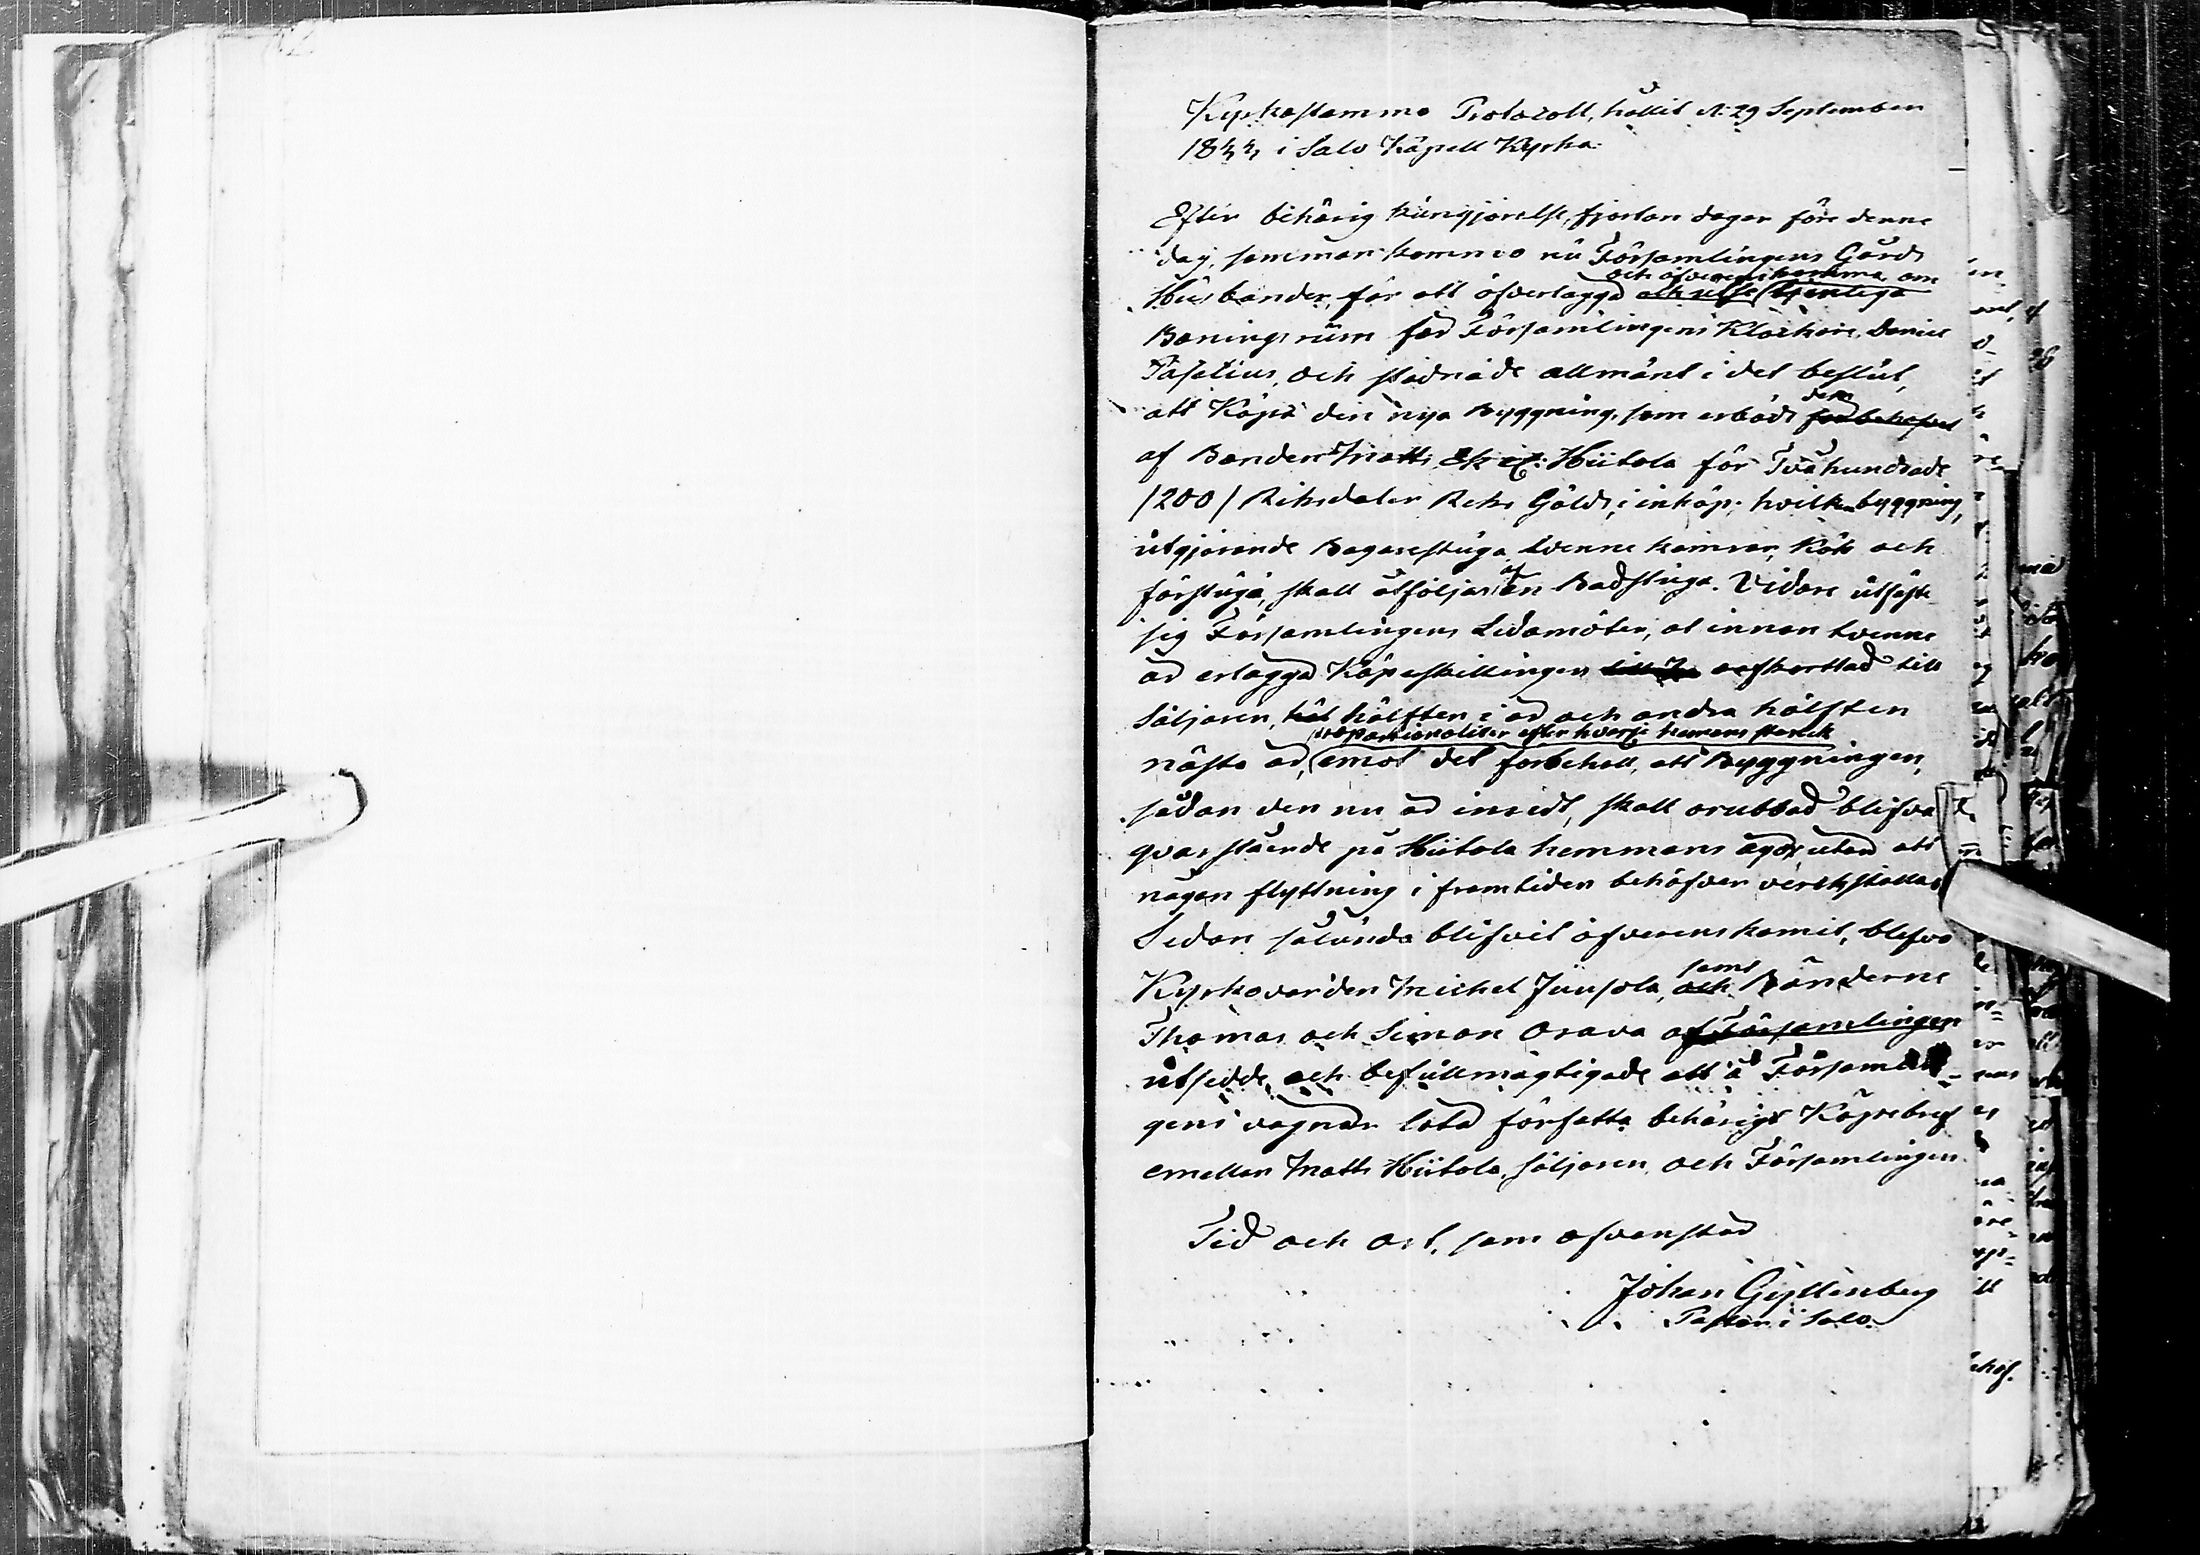 Kyrkostämmo Protocoll, hållit d. 29 September
1844 i Salo Kapell Kyrka.
Efter behörig kungjörelse, fjorton dagar före denne
dag, sammankommo nu Församlingens Gårds
och öfverenskomma om
Husbönder, för att öfverlägga och utse tjenliga
Boningsrum för Församlingens Klockare, Daniel
och stadnade allmänt i det beslut,
dem
att Köpa den nya Byggning, som erböds
af Bonden Matts Hiitola för Tvåhundrade
/200/ Riksdaler Riks Gälds, i inköp; hvilken byggning,
utgjörande Bagarestuga, tvenne kamrar, Kök och
förstuga, skall åtföljas af en Badstuga. Vidare utfäste
sig Församlingens Ledamöter, at innan tvenne
år erlägga Köpeskillingen oafkortad till
Säljaren, hälften i år och andra hälften
proportionaliter efter hvarje hemmans storlek
nästa år, emot det förbehåll, att Byggningen,
sådan den nu är inredt, skall orubbad blifva
qvarstående på Hiitola hemmans ägor, utan att
någon flyttning i framtiden behöfver verkställas
Sedan sålunda blifvit öfverenskomit, blefvo
samt
Kyrkovärden Michel Juusola, och Bönderne
Thomas och Simon Orava af Församlingen
utsedde och befullmägtigade att å Församlin-
gens vägnar låta författa behörigt Köpebref
emellan Matts Hiitola, säljaren, och Församlingen.
Tid och ort, som ofvanstår
Johan Gyllenberg
Pastor i Salo.